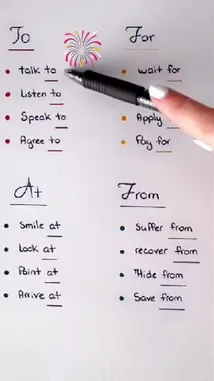 To
talk to
Listen to
Speak to
Agree to
For
wait for
Apply
Pay for
At
Smile at
Look at
Point at
Arrive at
From
Suffer from
recover from
Hide from
Save from